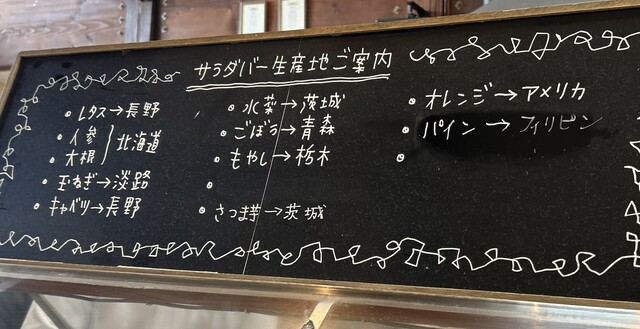 サラダバー生産地ご案内
• レタス→長野
• 人参
• 大根 } 北海道
• 玉ねぎ→淡路
• キャベツ→長野
• 水菜→茨城
• ごぼう→青森
• もやし→栃木
•
• さつま芋→茨城
• オレンジ→アメリカ
• パイン→フィリピン
•